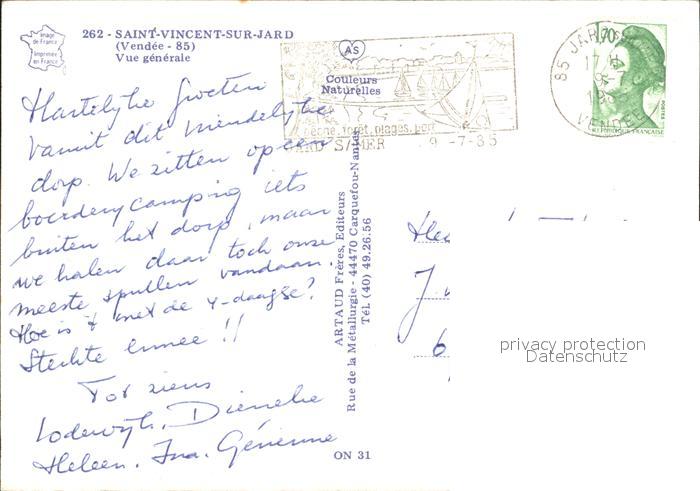 Image
de France
Imprimée
en France
262 - SAINT-VINCENT-SUR-JARD
(Vendée - 85)
Vue générale
AS
Couleurs
Naturelles
forêt, plages, port
JARD S/MER 9-7-85
85 JARD
17 H
9-7
VENDEE
1,70
POSTES
REPUBLIQUE FRANÇAISE
Hartelijke groeten
vanuit dit vriendelijke
dorp. We zitten op een
boerderij camping iets
buiten het dorp, maar
we halen daar toch onze
meeste spullen vandaan.
Hoe is 't met de 4-daagse?
Sterkte ermee !!
Tot ziens
Lodewijk,
Heleen,
ARTAUD Frères, Editeurs
Rue de la Métallurgie - 44470 Carquefou-Nantes
Tél. (40) 49.26.56
ON 31
J
6
privacy protection
Datenschutz